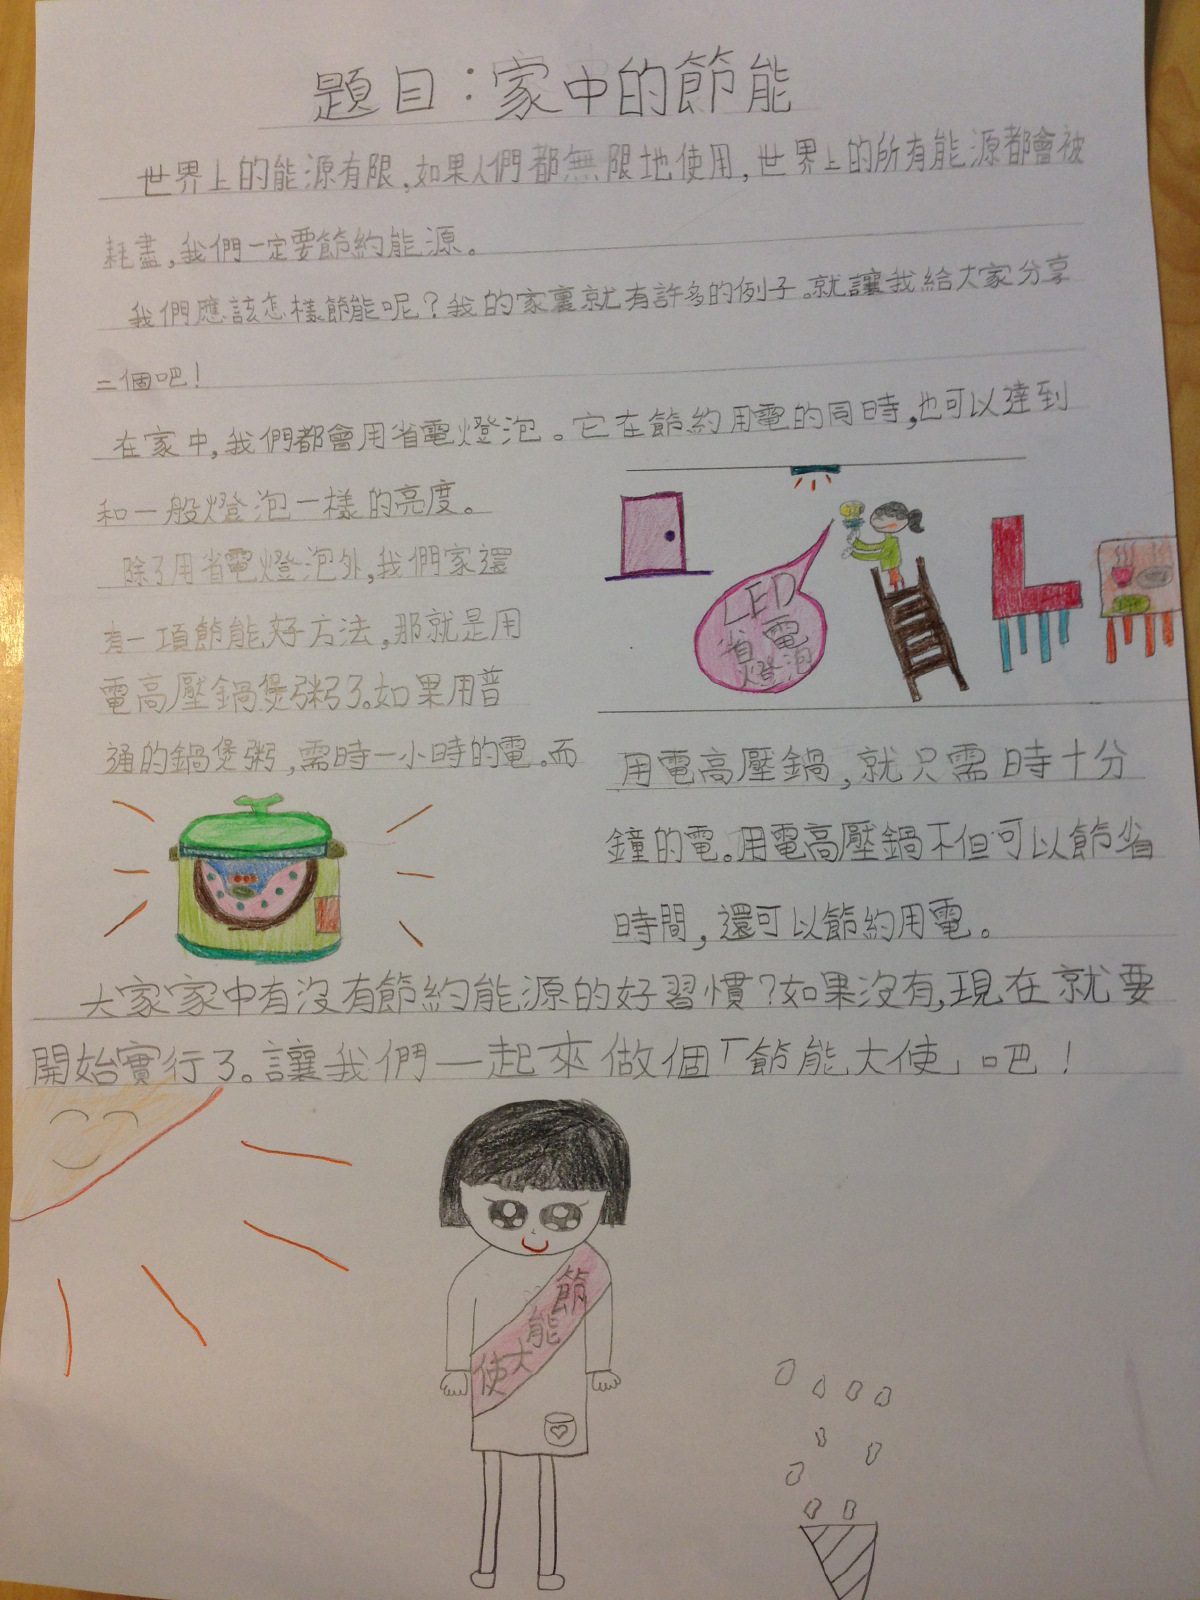 題目：家中的節能
世界上的能源有限,如果人們都無限地使用,世界上的所有能源都會被
耗盡,我們一定要節約能源。
我們應該怎樣節能呢？我的家裏就有許多的例子。就讓我給大家分享
二個吧！
在家中,我們都會用省電燈泡。它在節約用電的同時,也可以達到
和一般燈泡一樣的亮度。
LED
省電
燈泡
除了用省電燈泡外,我們家還
有一項節能好方法,那就是用
電高壓鍋煲粥了。如果用普
通的鍋煲粥,需時一小時的電。而
用電高壓鍋,就只需時十分
鐘的電。用電高壓鍋不但可以節省
時間,還可以節約用電。
大家家中有沒有節約能源的好習慣？如果沒有,現在就要
開始實行了。讓我們一起來做個「節能大使」吧！
節能大使